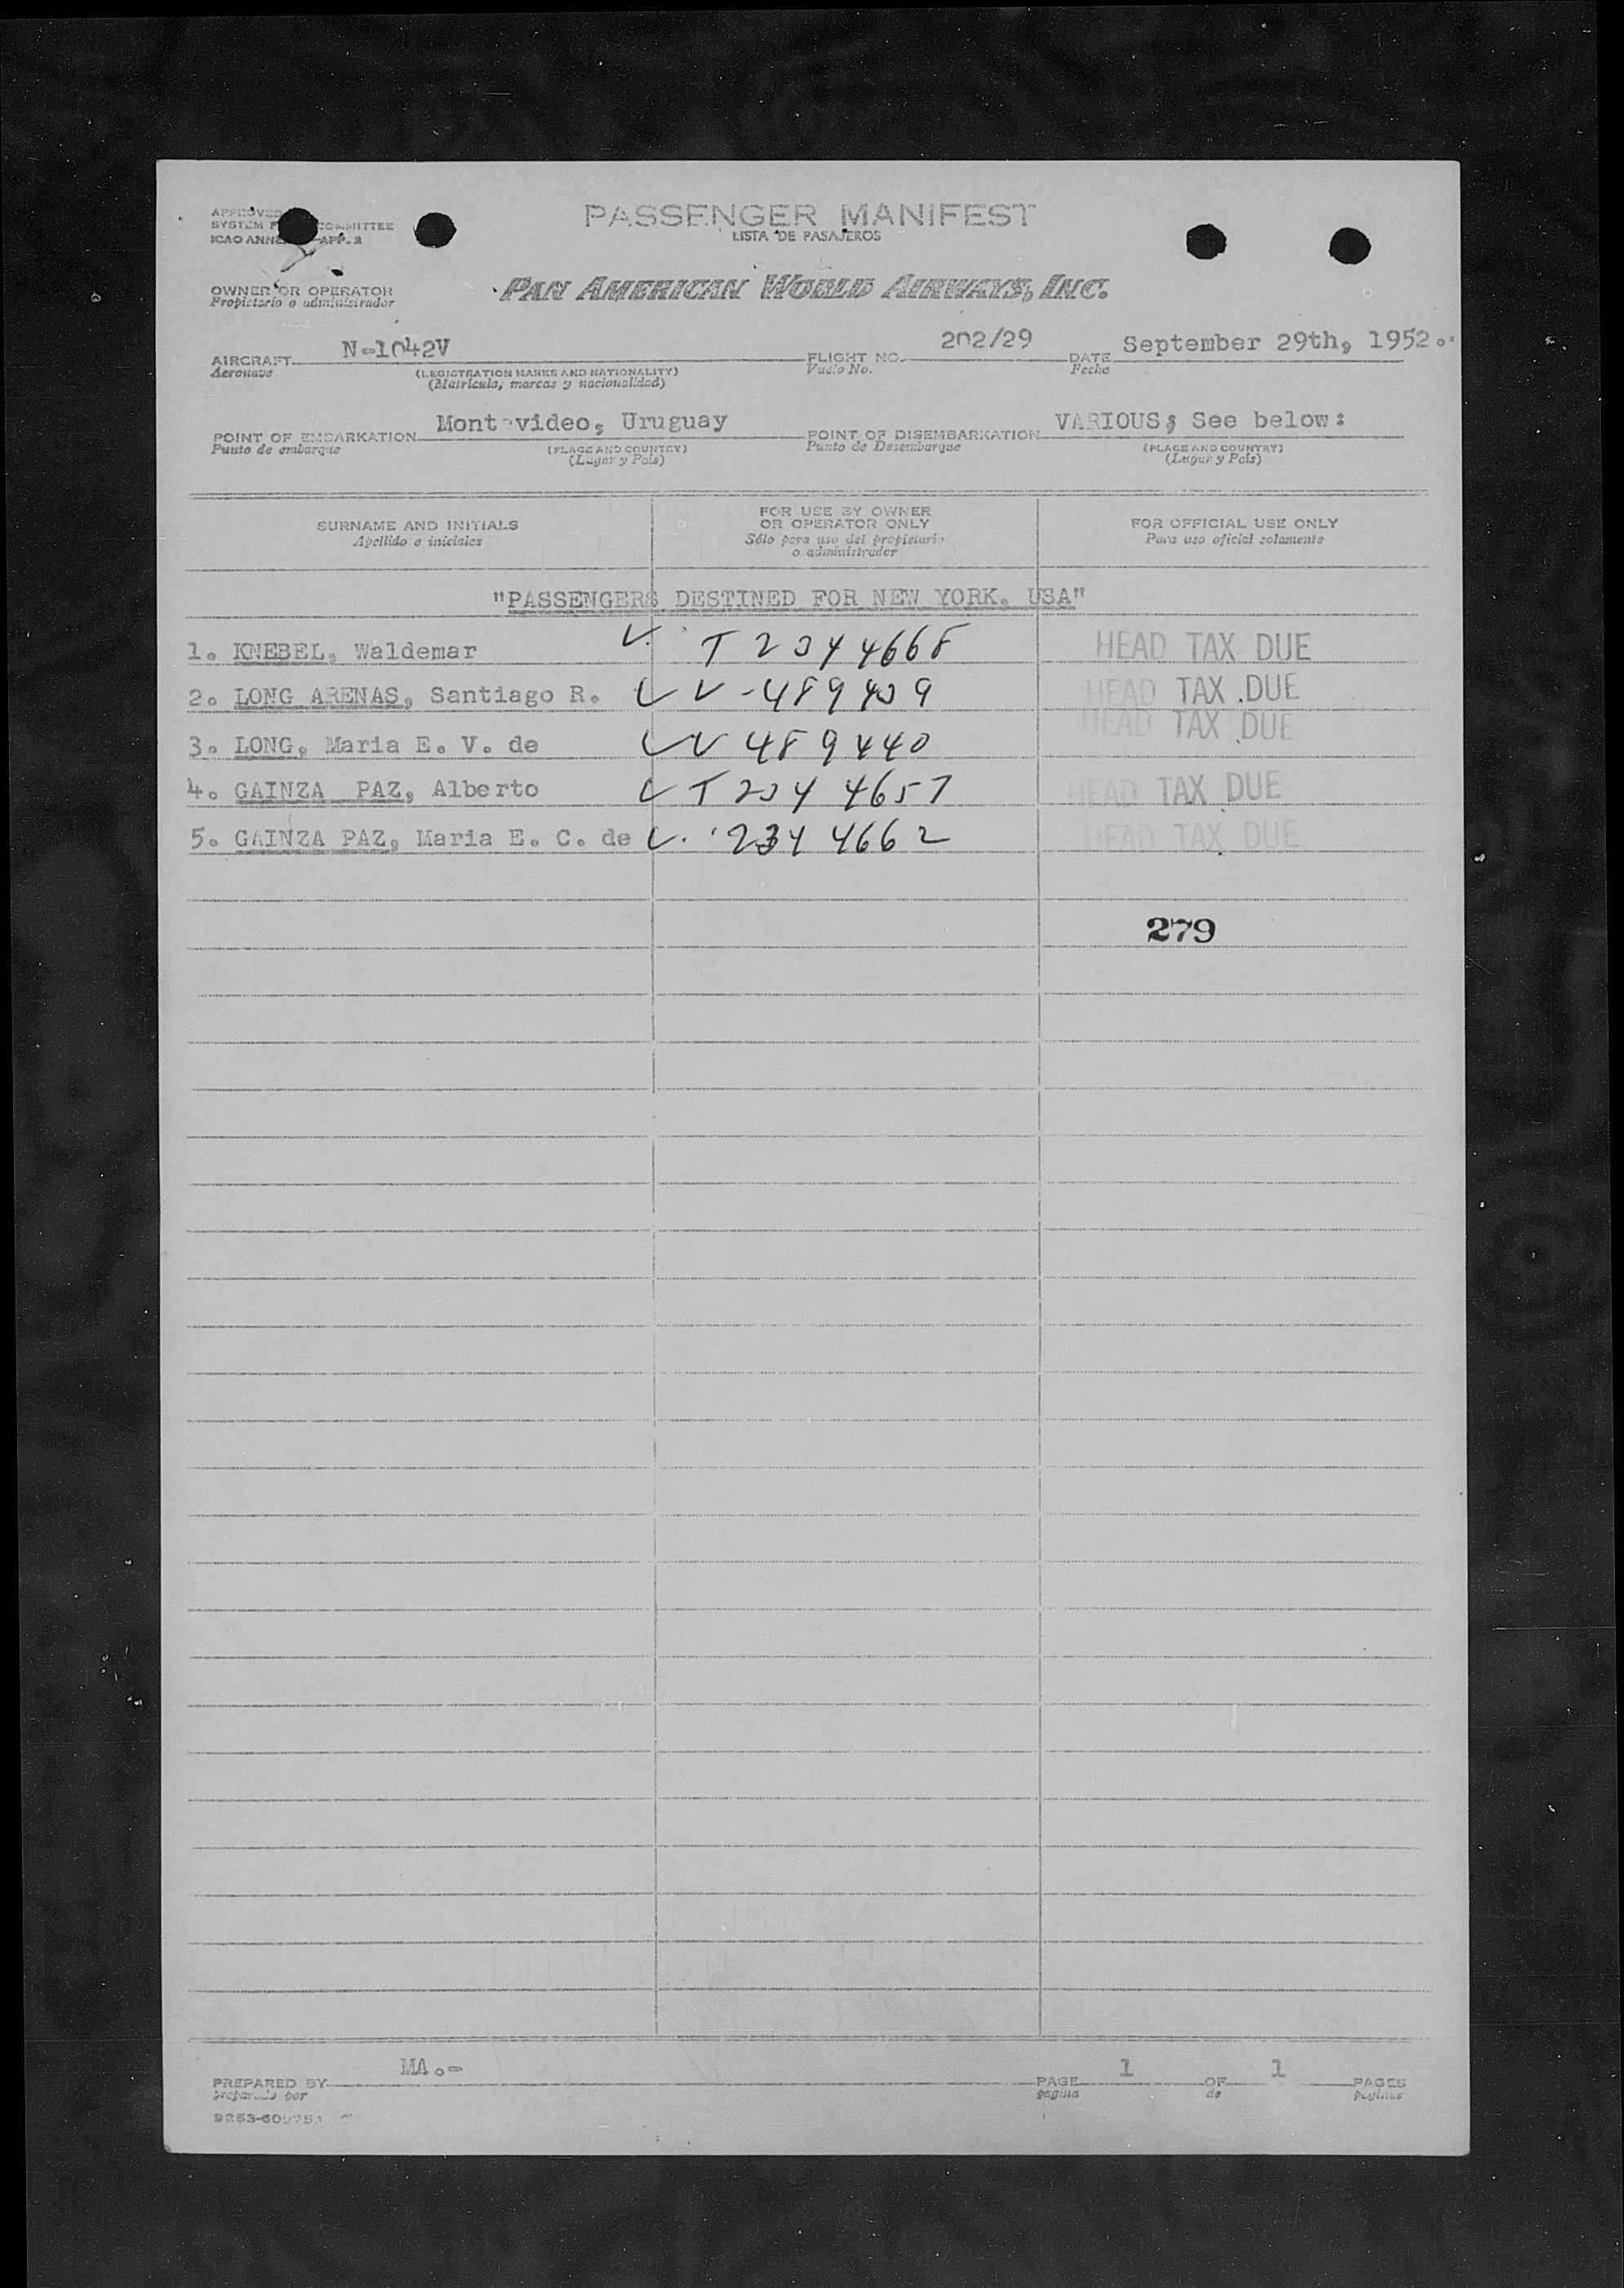 APPROVED
PASSENGER MANIFEST
SYSTEM COMMITTEE
LISTA DE PASAJEROS
ICAO APP. 2
OWNER OR OPERATOR
Propietario o administrador
PAN AMERICAN WORLD AIRWAYS, INC.
AIRCRAFT N-1042V FLIGHT NO. 202/29 DATE September 29th, 1952.
Aeronave (REGISTRATION MARKS AND NATIONALITY) Vuelo No. Fecha
(Matrícula, marcas y nacionalidad)
POINT OF EMBARKATION Montevideo, Uruguay POINT OF DISEMBARKATION VARIOUS; See below:
Punto de embarque (PLACE AND COUNTRY) Punto de Desembarque (PLACE AND COUNTRY)
(Lugar y País) (Lugar y País)
SURNAME AND INITIALS
Apellido e iniciales
FOR USE BY OWNER
OR OPERATOR ONLY
Sólo para uso del propietario
o administrador
FOR OFFICIAL USE ONLY
Para uso oficial solamente
"PASSENGERS DESTINED FOR NEW YORK. USA"
1. KNEBEL, Waldemar T 2344668 HEAD TAX DUE
2. LONG ARENAS, Santiago R. V-489439 HEAD TAX DUE
3. LONG, Maria E. V. de V 489440 HEAD TAX DUE
4. GAINZA PAZ, Alberto T 2344657 HEAD TAX DUE
5. GAINZA PAZ, Maria E. C. de 2344662 HEAD TAX DUE
279
PREPARED BY MA.- PAGE 1 OF 1 PAGES
preparado por página de páginas